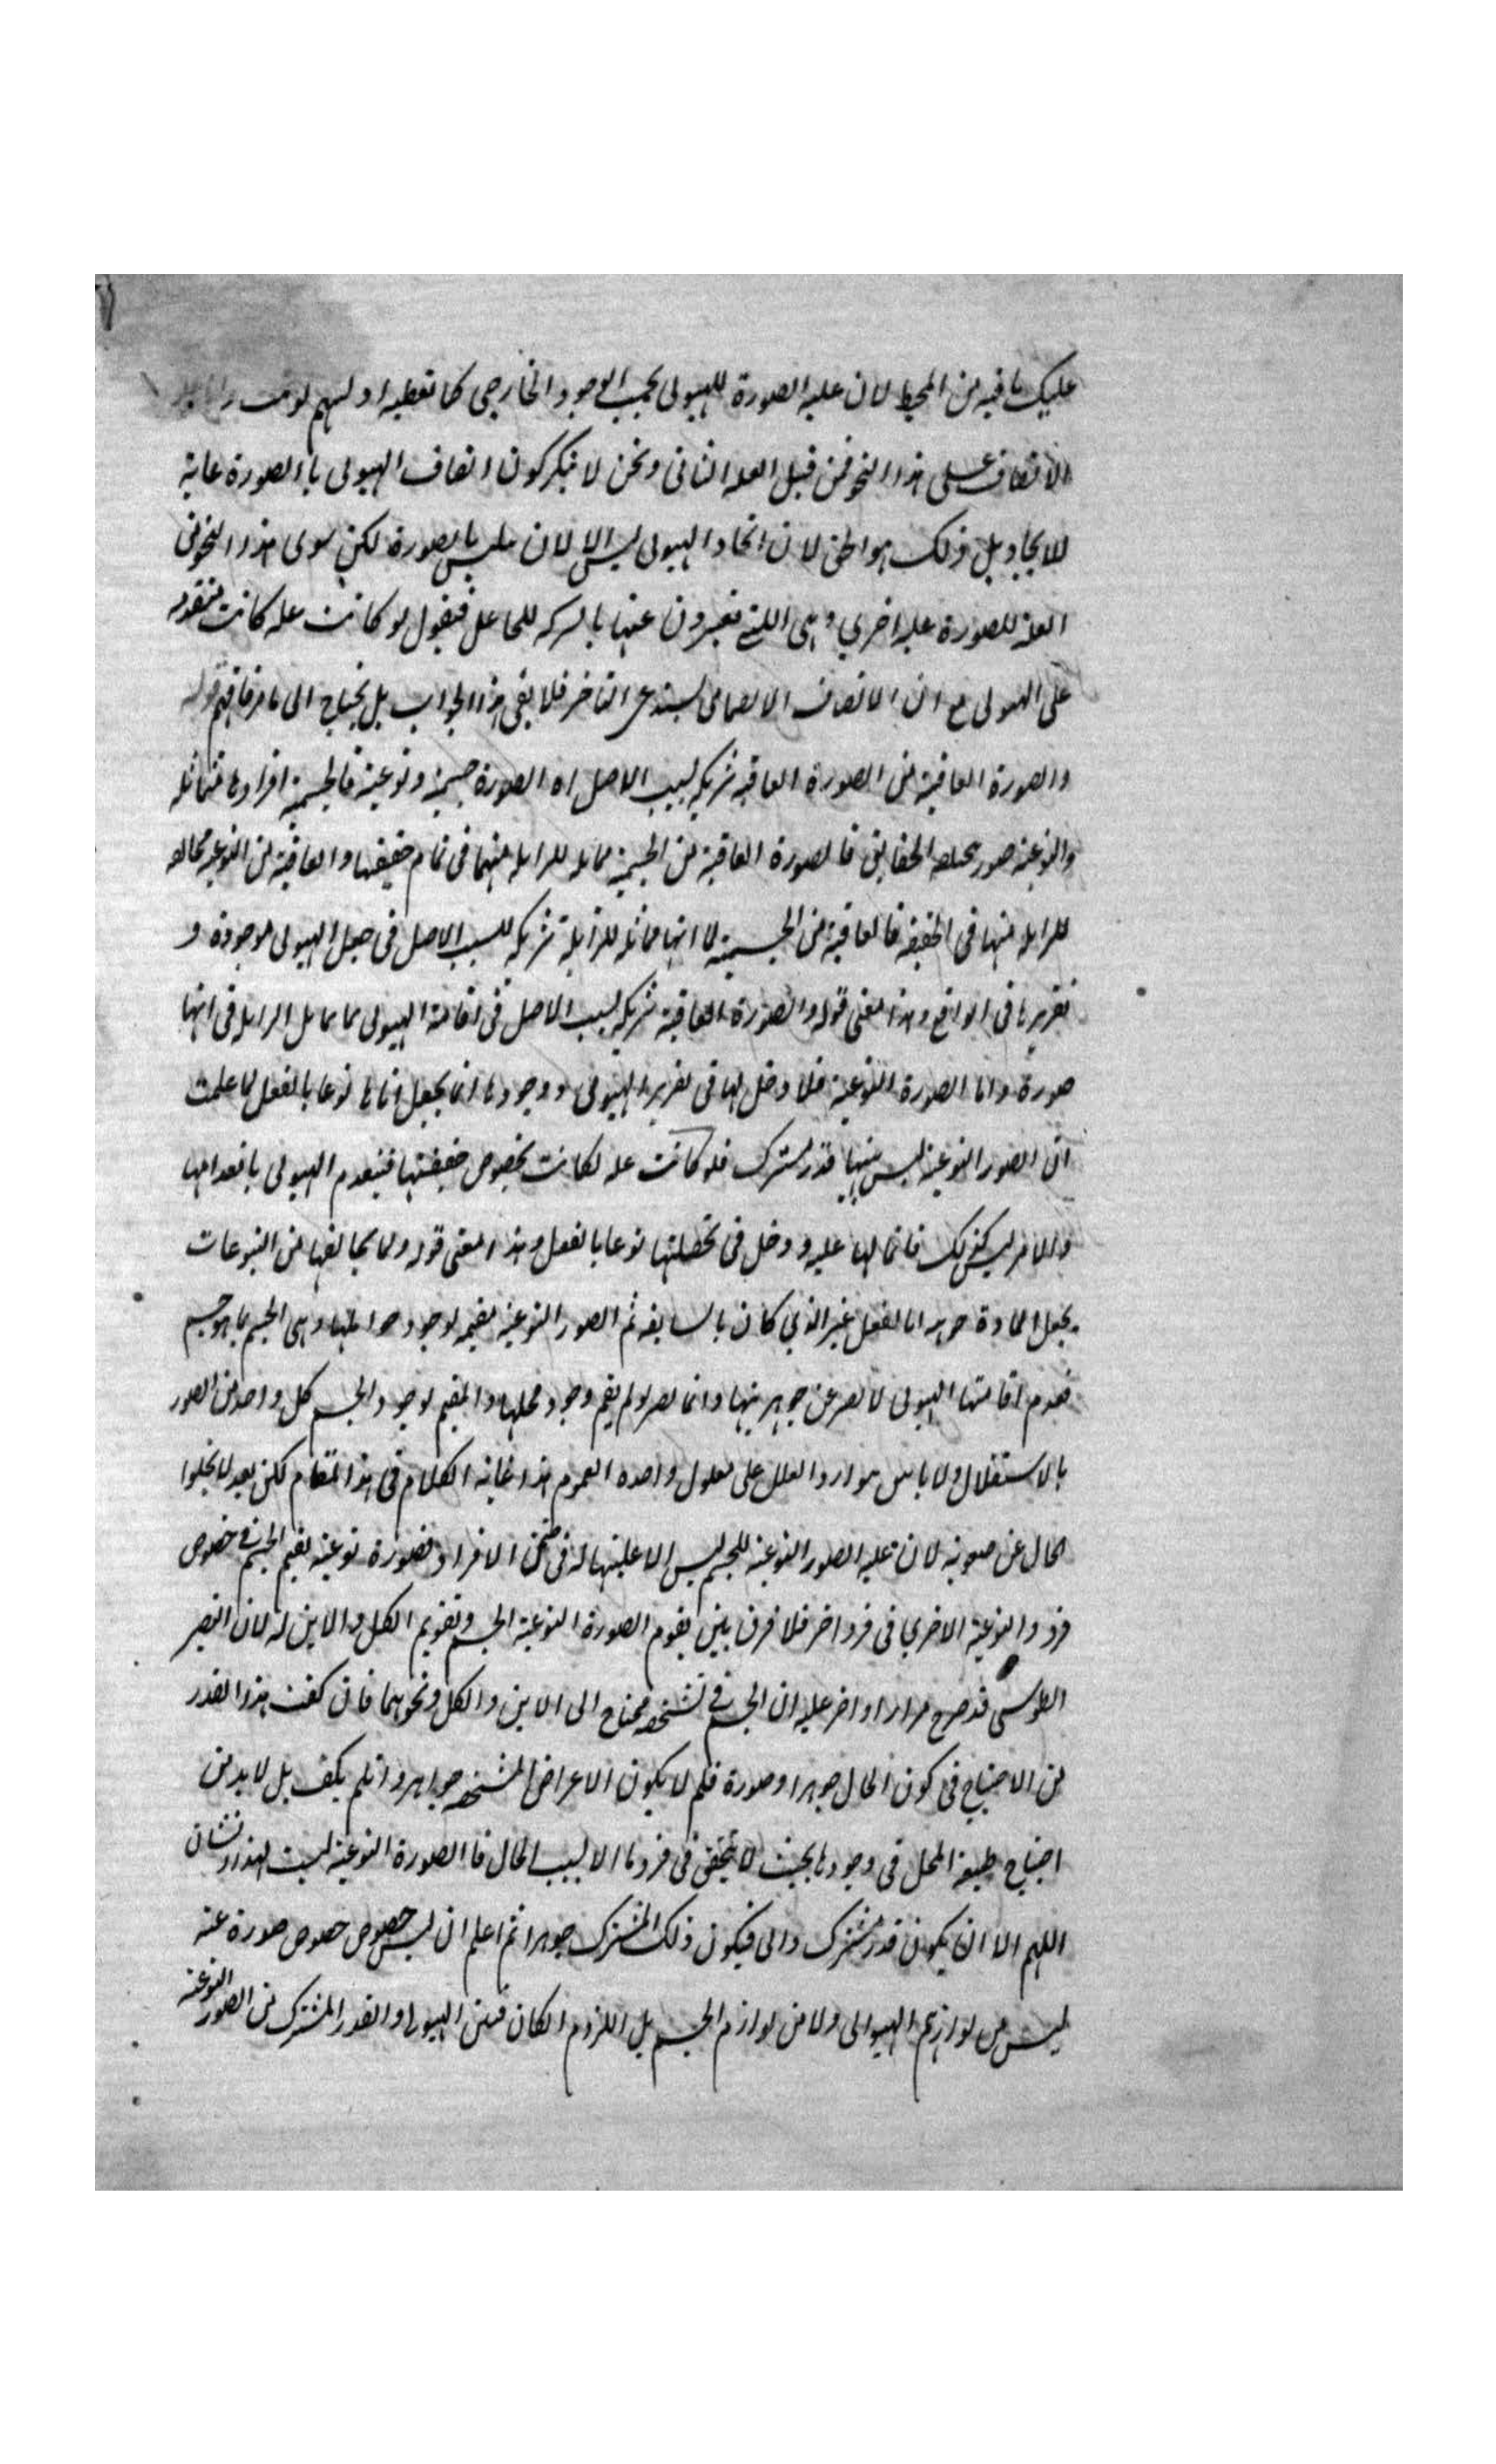 عليك ما فيه من المحيط لان علية الصورة للهيولى بحسب الوجود الخارجى كما تعطيه ادلتهم لو تمت
الاتصاف على هذا النحو فمن قبيل العلة الثانى ونحن لا ننكر كون اتصاف الهيولى باالصورة غاية
للايجاد بل ذلك هو الحق لان اتحاد الهيولى ليس الا لان يتلبس بالصورة لكن سوى هذا النحو فى
العلة للصورة علية اخرى وهى اللتى تعبرون عنها بالشركة للجاعل فنقول لو كانت علة كانت متقدمة
على الهيولى مع ان الاتصاف الانضمامى يستدعى التاخر فلا يفى هذا الجواب بل يحتاج الى ما مر فافهم قوله
والصورة العاقبة من الصورة العاقبة شريكة لسبب الاصل اه الصورة جسمية ونوعية فالجسمية افرادها متماثلة
والنوعية صور مختلفة الحقايق فالصورة العاقبة من الجسمية مماثلة للزايلة منهما فى تمام حقيقتها والعاقبة من النوعية مخالفة
للزايلة منها فى الحقيقة فالعاقبة من الجسمية لا انها مماثلة للزايلة شريكة للسبب الاصل فى جعل الهيولى موجودة و
تقريرها فى الواقع وهذا معنى قوله والصورة العاقبة شريكة لسبب الاصل فى اقامة الهيولى مما يماثل الزايل فى انها
صورة واما الصورة النوعية فلا دخل لها فى تقرير الهيولى ووجودها انما يجعل اياها نوعا بالفعل لما علمت
ان الصور النوعية ليس بينها قدر مشترك فلو كانت علة لكانت بخصوص حقيقتها فينعدم الهيولى بانعدامها
والامر ليس كذلك فانما لها علية ودخل فى تحصلها نوعا بالفعل وهذا معنى قوله ولما يخالفها من النوعيات
يجعل المادة جوهرا بالفعل غير الذي كان بالسابقة ثم الصور النوعية مقيمة لوجود موادها وهى الجسم بما هو جسم
فعدم اقامتها الهيولى لا يضر عن جوهريتها وانما يضر لو لم يقم وجود محلها والمقيم لوجود الجسم كل واحد من الصور
بالاستقلال ولا باس بتوارد العلل على معلول واحده العموم هذا غاية الكلام فى هذا المقام لكن بعد لا يخلوا
الحال عن صعوبة لان علية الصور النوعية للجسم ليس الا عليتها له فى ضمن الافراد فصورة نوعية تقيم الجسم فى خصوص
فرد والنوعية الاخرى فى فرد اخر فلا فرق بين تقوم الصورة النوعية الجسم وتقويم الكل والاين له لان النصير
الطوسى قد صرح مرارا واخر عليه ان الجسم فى تشخصه محتاج الى الاين والكل ونحوهما فان كفت هذا القدر
من الاحتياج فى كون الحال جوهرا وصورة فلم لا يكون الاعراض المشخصه جواهر وان لم يكف بل لا بد من
احتياج طبيعة المحل فى وجودها بحيث لا يتحقق فى فرد ما الا بسبب الحال فا الصورة النوعية ليست لهذا الشان
اللهم الا ان يكون قدر مشترك ذاتى فيكون ذلك المشترك جوهرا ثم اعلم ان ليس خصوص خصوص صورة عنه
ليس من لوازم الهيولى ولا من لوازم الجسم بل اللزوم ان كان فبين الهيولى والقدر المشترك من الصور النوعية